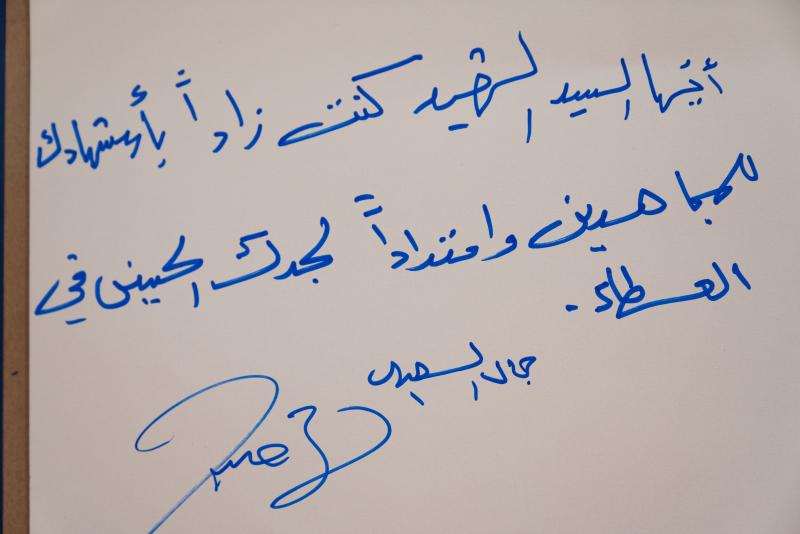 أيها السيد الشهيد كنت زاداً بأستشهادك
للمجاهدين وامتداداً لجدك الحسين في
العطاء.